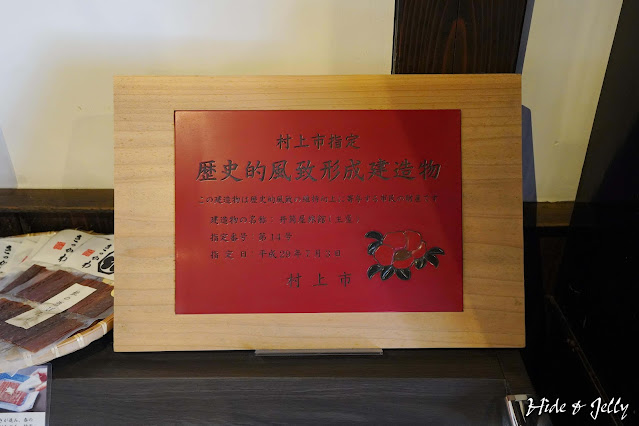 村上市指定
歴史的風致形成建造物
この建造物は歴史的風致の維持向上に寄与する市民の財産です
建造物の名称:
指定番号:第14号
指定日:平成29年 月 日
村上市
Hide & Jelly